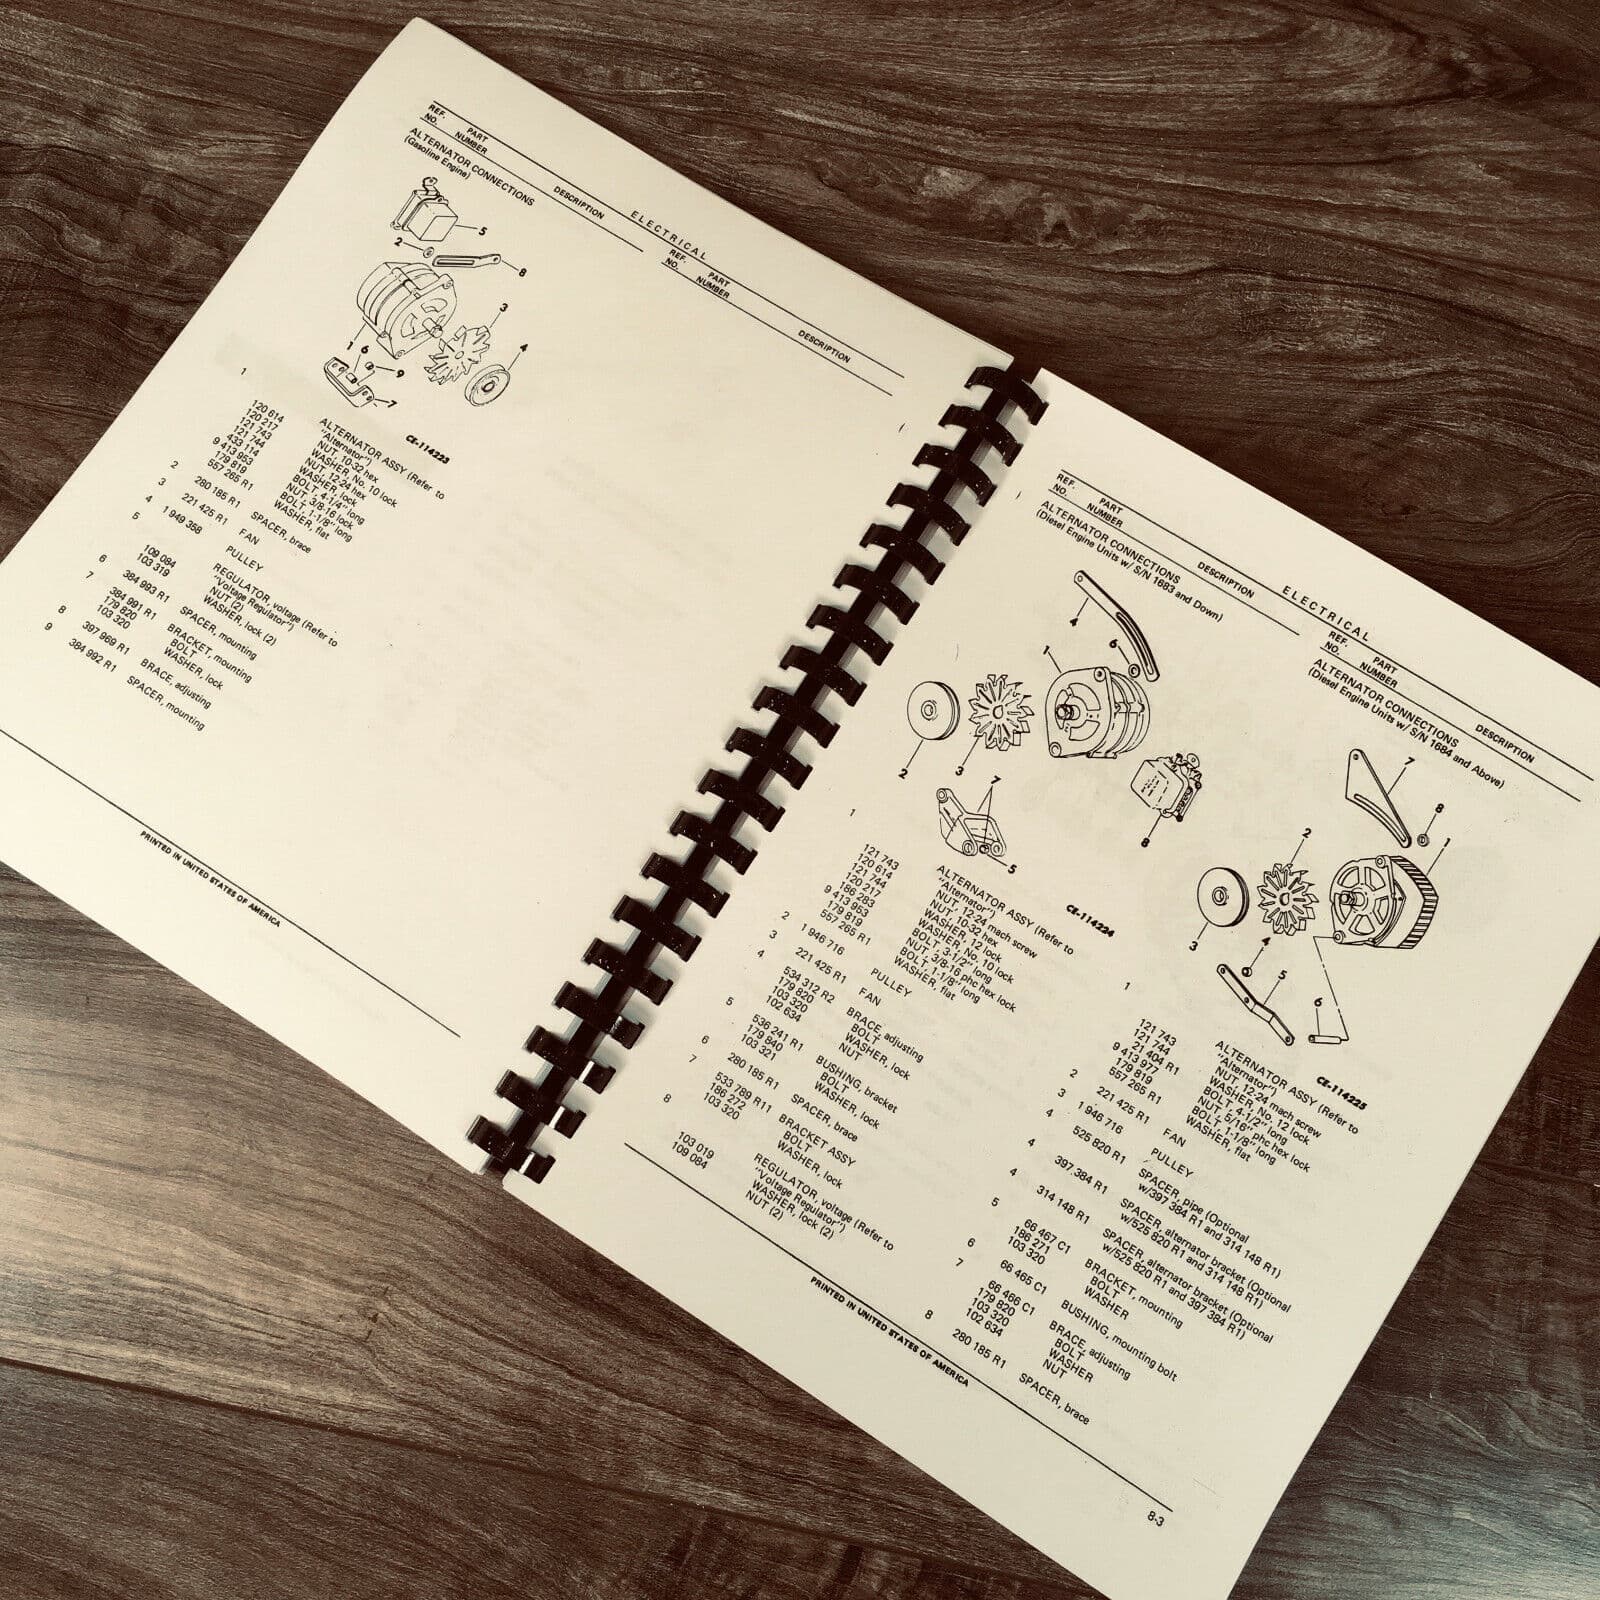 ELECTRICAL
REF. NO. PART NUMBER DESCRIPTION REF. NO. PART NUMBER DESCRIPTION
ALTERNATOR CONNECTIONS
(Gasoline Engine)
5
2
8
3
1
6
9
4
7
CE-114223
1 ALTERNATOR ASSY (Refer to
"Alternator")
120 614 NUT, 10-32 hex
120 217 WASHER, No. 10 lock
121 743 NUT, 12-24 hex
121 744 WASHER, lock
433 114 BOLT, 4-1/4" long
9 413 953 NUT, 3/8-16 lock
179 819 BOLT, 1-1/8" long
557 265 R1 WASHER, flat
2 280 185 R1 SPACER, brace
3 221 425 R1 FAN
4 1 949 358 PULLEY
5 REGULATOR, voltage (Refer to
"Voltage Regulator")
109 084 NUT (2)
103 319 WASHER, lock (2)
6 384 993 R1 SPACER, mounting
7 384 991 R1 BRACKET, mounting
179 820 BOLT
103 320 WASHER, lock
8 397 969 R1 BRACE, adjusting
9 384 992 R1 SPACER, mounting
PRINTED IN UNITED STATES OF AMERICA
ELECTRICAL
REF. NO. PART NUMBER DESCRIPTION REF. NO. PART NUMBER DESCRIPTION
ALTERNATOR CONNECTIONS
(Diesel Engine Units w/ S/N 1683 and Down)
4
6
1
2
3
7
8
5
CE-114224
1 ALTERNATOR ASSY (Refer to
"Alternator")
121 743 NUT, 12-24 mach screw
120 614 NUT, 10-32 hex
121 744 WASHER, 12 lock
120 217 WASHER, No. 10 lock
186 283 BOLT, 3-1/2" long
9 413 953 NUT, 3/8-16 phc hex lock
179 819 BOLT, 1-1/8" long
557 265 R1 WASHER, flat
2 1 946 716 PULLEY
3 221 425 R1 FAN
4 534 312 R2 BRACE, adjusting
179 820 BOLT
103 320 WASHER, lock
102 634 NUT
5 536 241 R1 BUSHING, bracket
179 840 BOLT
103 321 WASHER, lock
6 280 185 R1 SPACER, brace
7 533 789 R11 BRACKET ASSY
186 272 BOLT
103 320 WASHER, lock
8 REGULATOR, voltage (Refer to
"Voltage Regulator")
103 019 WASHER, lock (2)
109 084 NUT (2)
ALTERNATOR CONNECTIONS
(Diesel Engine Units w/ S/N 1684 and Above)
7
8
2
1
3
4
5
6
CE-114225
1 ALTERNATOR ASSY (Refer to
"Alternator")
121 743 NUT, 12-24 mach screw
121 744 WASHER, No. 12 lock
21 404 R1 BOLT, 4-1/2" long
9 413 977 NUT, 5/16" phc hex lock
179 819 BOLT, 1-1/8" long
557 265 R1 WASHER, flat
2 221 425 R1 FAN
3 1 946 716 PULLEY
4 525 820 R1 SPACER, pipe (Optional
w/397 384 R1 and 314 148 R1)
4 397 384 R1 SPACER, alternator bracket (Optional
w/525 820 R1 and 314 148 R1)
4 314 148 R1 SPACER, alternator bracket (Optional
w/525 820 R1 and 397 384 R1)
5 66 467 C1 BRACKET, mounting
186 271 BOLT
103 320 WASHER
6 66 465 C1 BUSHING, mounting bolt
7 66 466 C1 BRACE, adjusting
179 820 BOLT
103 320 WASHER
102 634 NUT
8 280 185 R1 SPACER, brace
PRINTED IN UNITED STATES OF AMERICA
8-3